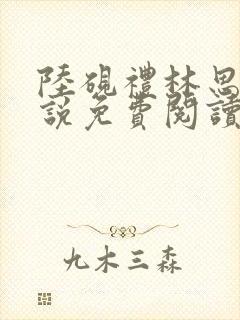 陸硯禮林思
説免費閱讀
九木三森